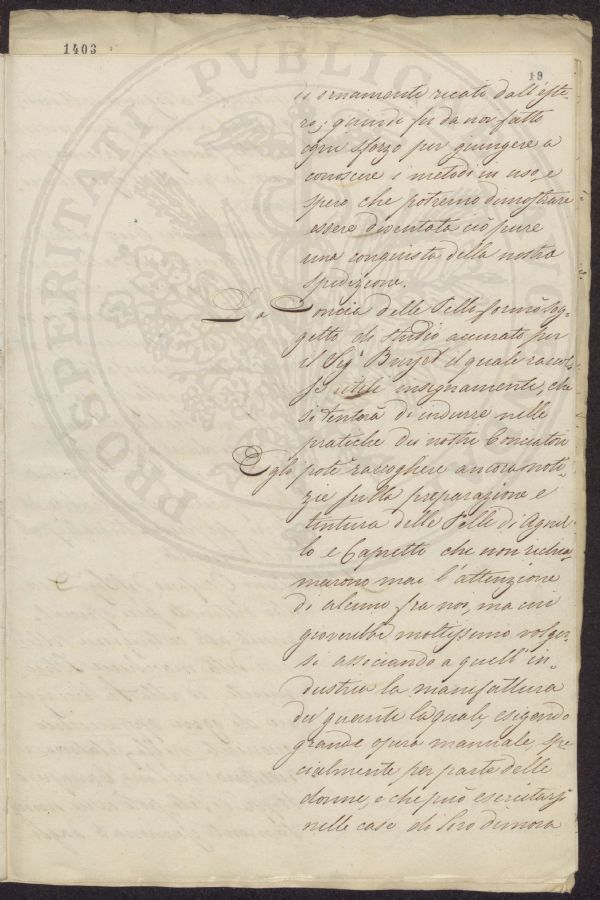 1403
19
ni ornamente recati dall'este-
ro; quindi fu da noi fatto
ogni sforzo per giungere a
conoscere i metodi in uso, e
spero che potremo dimostrare
essere diventata ciò pure
una conquista della nostra
spedizione.
La Concia delle Pelli formò sog-
getto di studio accurato per
il Sig.r Bruyet il quale raccol-
se utili insegnamenti, che
si tenterà di indurre nelle
pratiche dei nostri Conciatori
Egli potè raccogliere ancora noti-
zie sulla preparazione e
tintura delle Pelli di Agnel-
lo e Capretti che non richia-
marono mai l'attenzione
di alcuno fra noi, ma cui
gioverebbe moltissimo volger-
si associando a quell'in-
dustria la manifattura
de' guanti la quale, esigendo
grande opera manuale, spe-
cialmente per parte delle
donne, e che può esercitarsi
nelle case di loro dimora
PROSPERITATI PUBLICAE